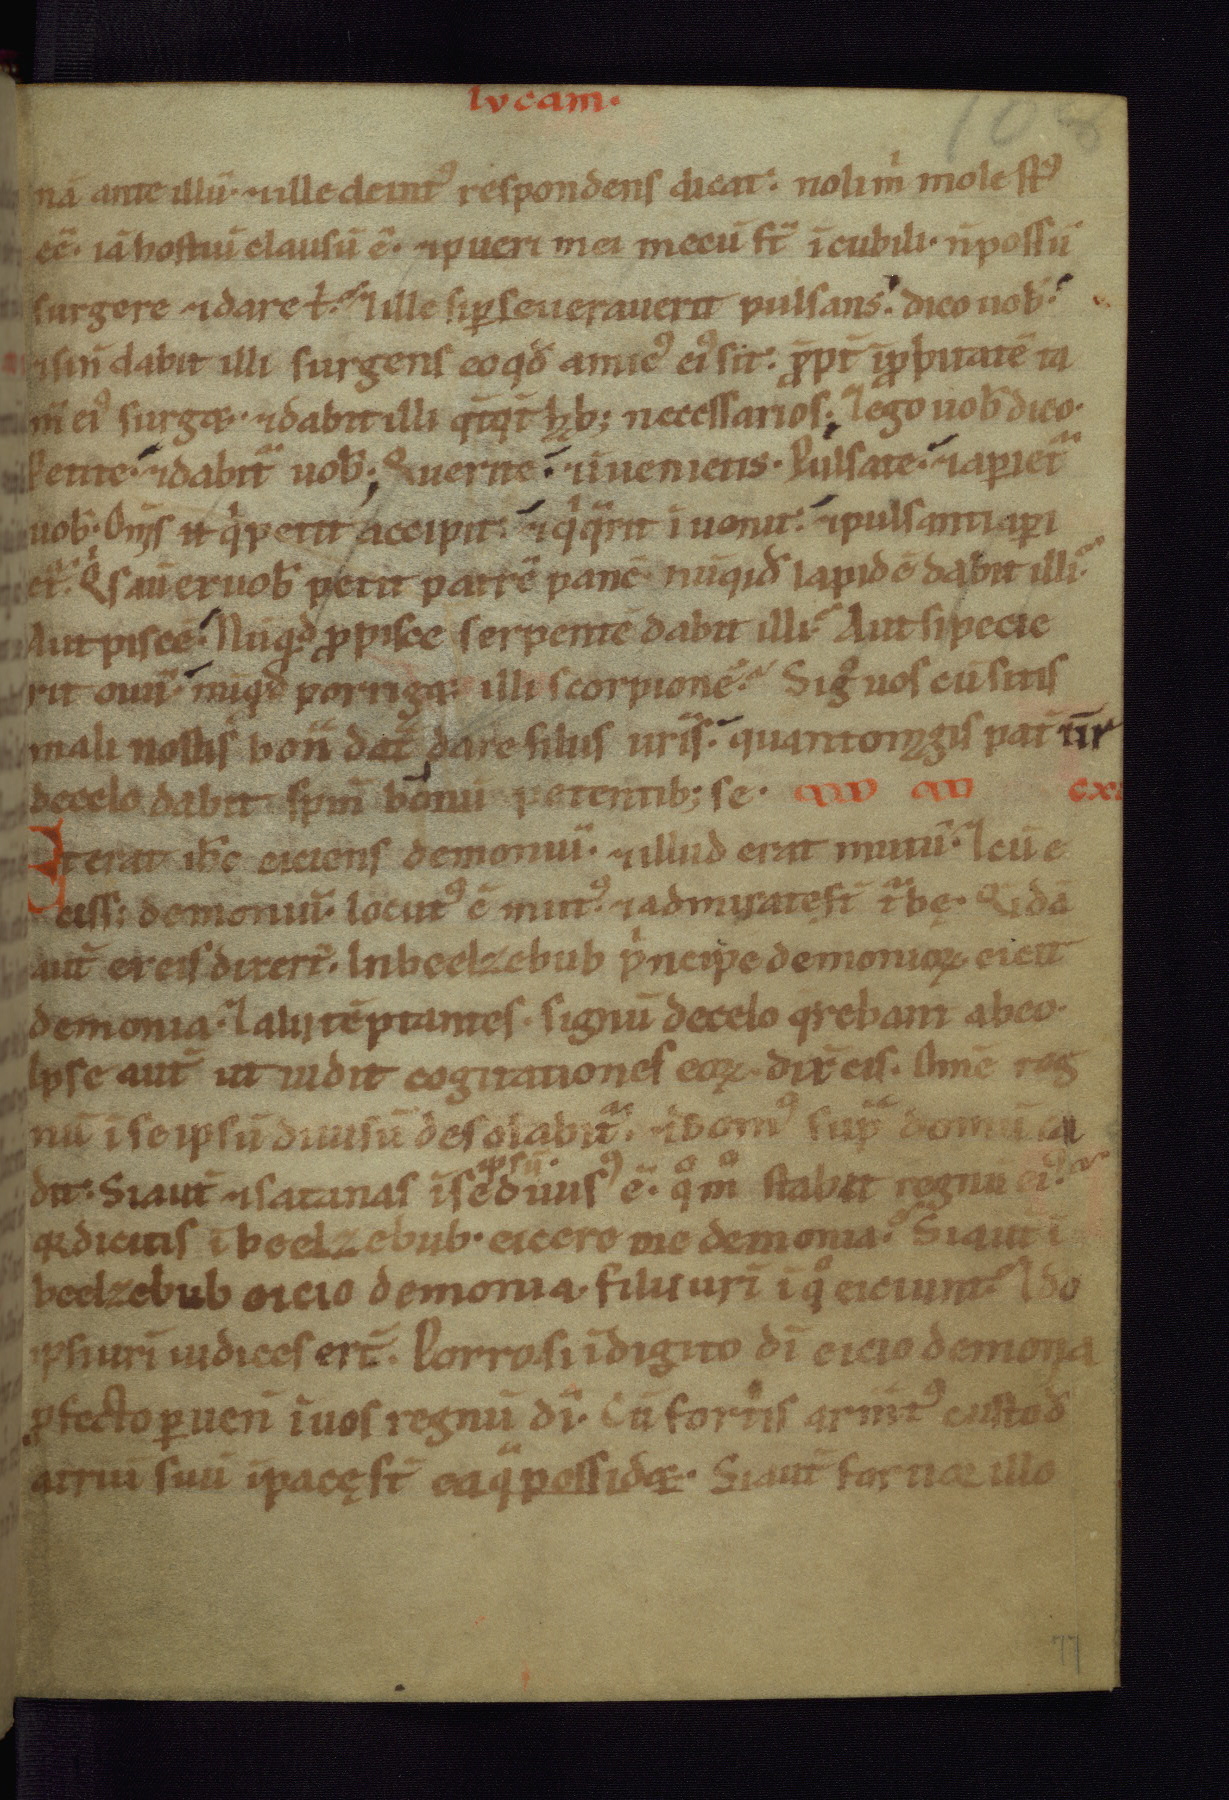 lvcam.
108
nā ante illū. ⁊ ille deintꝰ respondens dicat: noli m̄ molestꝰ
eē. iā hostiū clausū ē. ⁊ pueri mei mecū st̄ ī cubili. n̄ possū
surgere ⁊ dare t̄. ⁊ ille si ꝑseuerauerit pulsans: dico uob̄.
⁊ si n̄ dabit illi surgens eo qđ amicꝰ eiꝰ sit: ꝓpt̄ īꝓbitatē ta
m̄ eiꝰ surget. ⁊ dabit illi qͦtqͦt hꝫ b; necessarios; ⁊ ego uob̄ dico.
Petite. ⁊ dabit̄ uob̄; Querite. ⁊ īuenietis. Pulsate. ⁊ aꝑiet̄
uob̄. Om̄s n̄ qi petit accipit: ⁊ qi qr̄it īuenit. ⁊ pulsanti aꝑi
et̄. Qis aū ex uob̄ petit patrē panē. nūqid lapidē dabit illi.
Aut piscē. Nūqđ ꝓ pisce serpentē dabit illi. Aut si pecie
rit ouū. nūqđ porriget illi scorpionē. Si gͦ uos cū sitis
mali nostis bon̄ dat̄ dare filiis ur̄is. quanto mgis pat̄ ur̄
de celo dabit spm̄ bonū petentib; se. cxi
Et erat ih̄c eiciens demoniū. ⁊ illud erat mutū. ⁊ cū e
ciss; demoniū. locutꝰ ē mutꝰ. ⁊ admiratę st̄ t̄bę. Qidā
aut̄ ex eis dixer̄t. In beelzebub pͥncipe demonioꝝ eicit
demonia. ⁊ alii tēptantes. signū de celo qrebant ab eo.
Ipse aut̄ ut uidit cogitationes eoꝝ. dix̄ eis. Om̄e reg
nū ī se ipsū diuisū desolabit̄. ⁊ domꝰ suꝑ domū ca
dit. Si aut̄ ⁊ satanas ī se ipsū diuisꝰ ē. qͦm̊ stabit regnū eiꝰ.
qꝛ dicitis ī beelzebub. eicere me demonia. Si aut̄ ī
beelzebub eicio demonia. filii uri ī qͦ eiciunt. Ido
ipsi uri iudices ert̄. Porro si ī digito dī eicio demonia
ꝓfecto ꝑuen̄ ī uos regnū dī. Cū fortis armatꝰ custođ
atriū suū ī pacę st̄ ea qͣ possidet. Si aut̄ fortior illo
77